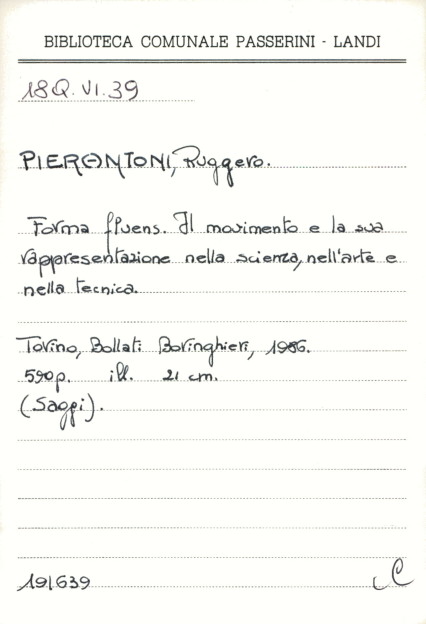 BIBLIOTECA COMUNALE PASSERINI - LANDI
18Q.VI.39
PIERANTONI, Ruggero.
Forma fluens. Il movimento e la sua
rappresentazione nella scienza, nell'arte e
nella tecnica.
Torino, Bollati Boringhieri, 1986.
590p. ill. 21 cm.
(Saggi).
191639